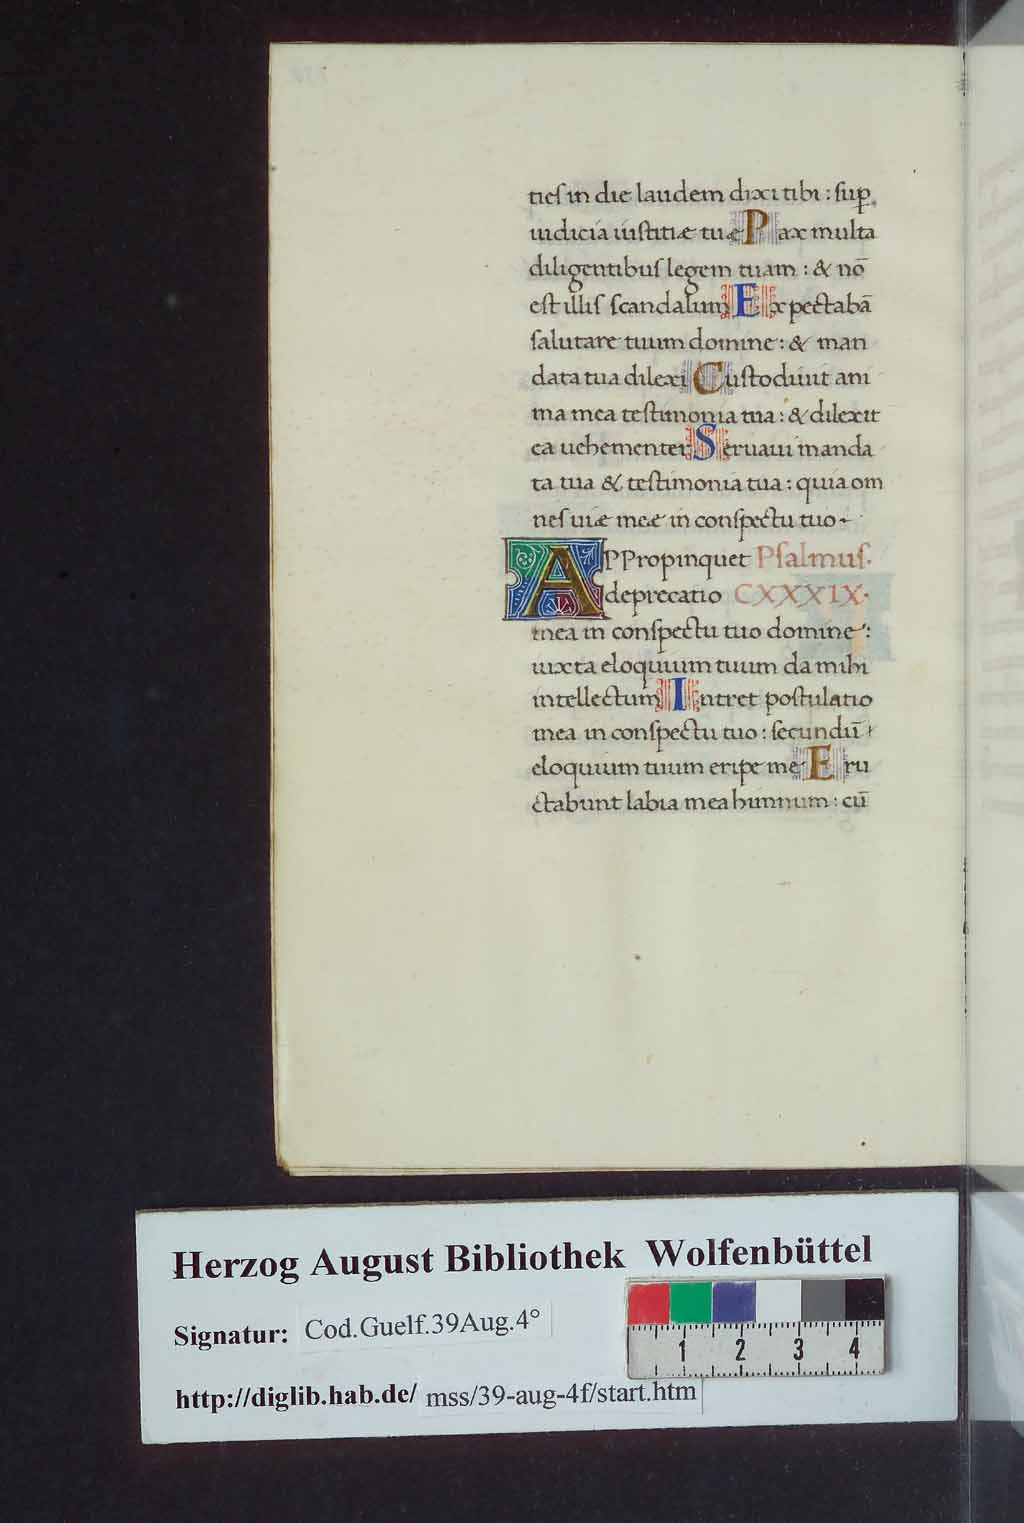 tieſ in die laudem dixi tibi : ſup̱
iudicia iuſtitiæ tuæ Pax multa
diligentibuſ legem tuam : & nō
eſt illiſ ſcandalum Expectabā
ſalutare tuum domine : & man
data tua dilexi Cuſtodiuit ani
ma mea teſtimonia tua : & dilexit
ea uehementer Seruaui manda
ta tua & teſtimonia tua : quia om
neſ uiæ meæ in conſpectu tuo
APPropinquet Pſalmuſ·
deprecatio CXXXIX·
mea in conſpectu tuo domine :
iuxta eloquium tuum da mihi
intellectum Intret poſtulatio
mea in conſpectu tuo : ſecundū
eloquium tuum eripe me Eru
ctabunt labia mea himnum : cū
Herzog August Bibliothek Wolfenbüttel
Signatur: Cod.Guelf.39Aug.4°
http://diglib.hab.de/ mss/39-aug-4f/start.htm
1 2 3 4